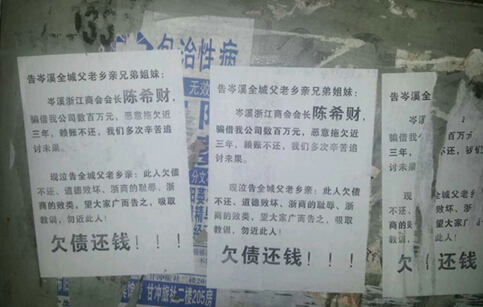 包治性病
无效
甘冲旅社二楼205房
告岑溪全城父老乡亲兄弟姐妹:
岑溪浙江商会会长陈希财,
骗借我公司数百万元,恶意拖欠近
三年,赖账不还,我们多次辛苦追
讨未果。
现泣告全城父老乡亲:此人欠债
不还、道德败坏、浙商的耻辱、浙
商的败类,望大家广而告之,吸取
教训,勿近此人!
欠债还钱!!!
告岑溪全城父老乡亲兄弟姐妹:
岑溪浙江商会会长陈希财,
骗借我公司数百万元,恶意拖欠近
三年,赖账不还,我们多次辛苦追
讨未果。
现泣告全城父老乡亲:此人欠债
不还、道德败坏、浙商的耻辱、浙
商的败类,望大家广而告之,吸取
教训,勿近此人!
欠债还钱!!!
告岑溪全城父
岑溪浙江
骗借我公司
三年,赖账
讨未果。
现泣告
不还、道德
商的败类,
教训,勿近
欠